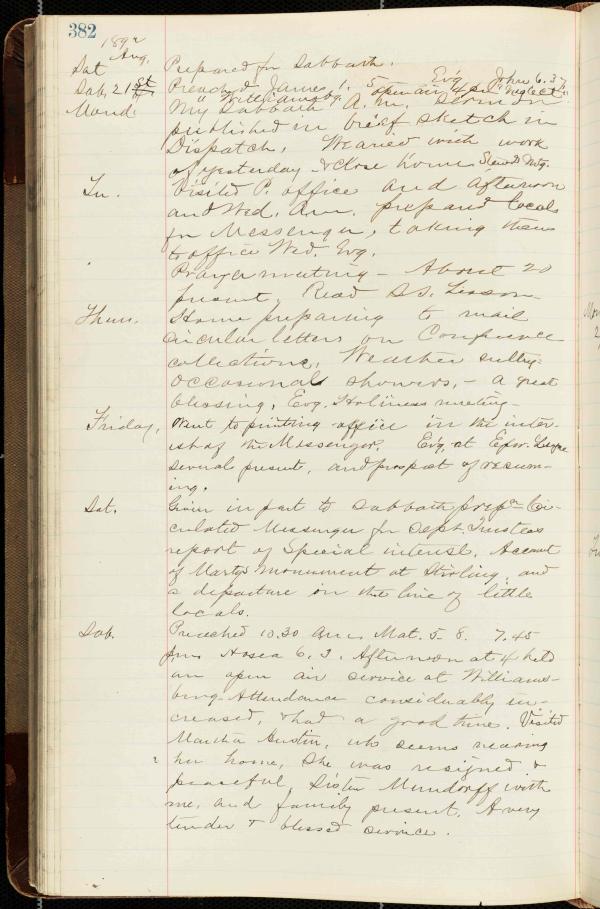 382
1892
Aug.
Sat Prepared for Sabbath.
Sab. 21st Preached James 1. 5 Evg. John 6.37
"Williamsbg. open air 4 P.M. "neglect"
Mond. My Sabbath A.M. Sermon
published in brief sketch in
Dispatch. Wearied with work
of yesterday & close home. Stew'd Mtg.
Tu. Visited P. office and afternoon
and Wed. A.m. prepared locals
for Messenger, taking them
to office Wed. Evg.
Prayer meeting - About 20
present. Read S.S. Lesson.
Thurs. Home preparing to mail
circular letters on Conference
collections, Weather sultry.
Occasional showers, - a great
blessing, Evg. Holiness meeting.
Friday, Went to printing office in the inter-
est of the Messenger. Evg. at Epw. League
several present, and prospect of resum-
ing.
Sat. Given in part to Sabbath prepn Cir-
culated Messenger for Sept. Trustees
report of Special interest. Account
of Martyr monument at Stirling, and
a departure in the line of little
locals.
Sab. Preached 10.30 Am. Mat. 5-8. 7.45
p.m. Hosea 6.3. Afternoon at 4 held
an open air service at Williams-
burg. Attendance considerably in-
creased, & had a good time. Visited
Martha Austin, who seems nearing
her home, She was resigned &
peaceful. Sister Mundorff with
me, and family present. A very
tender & blessed service.